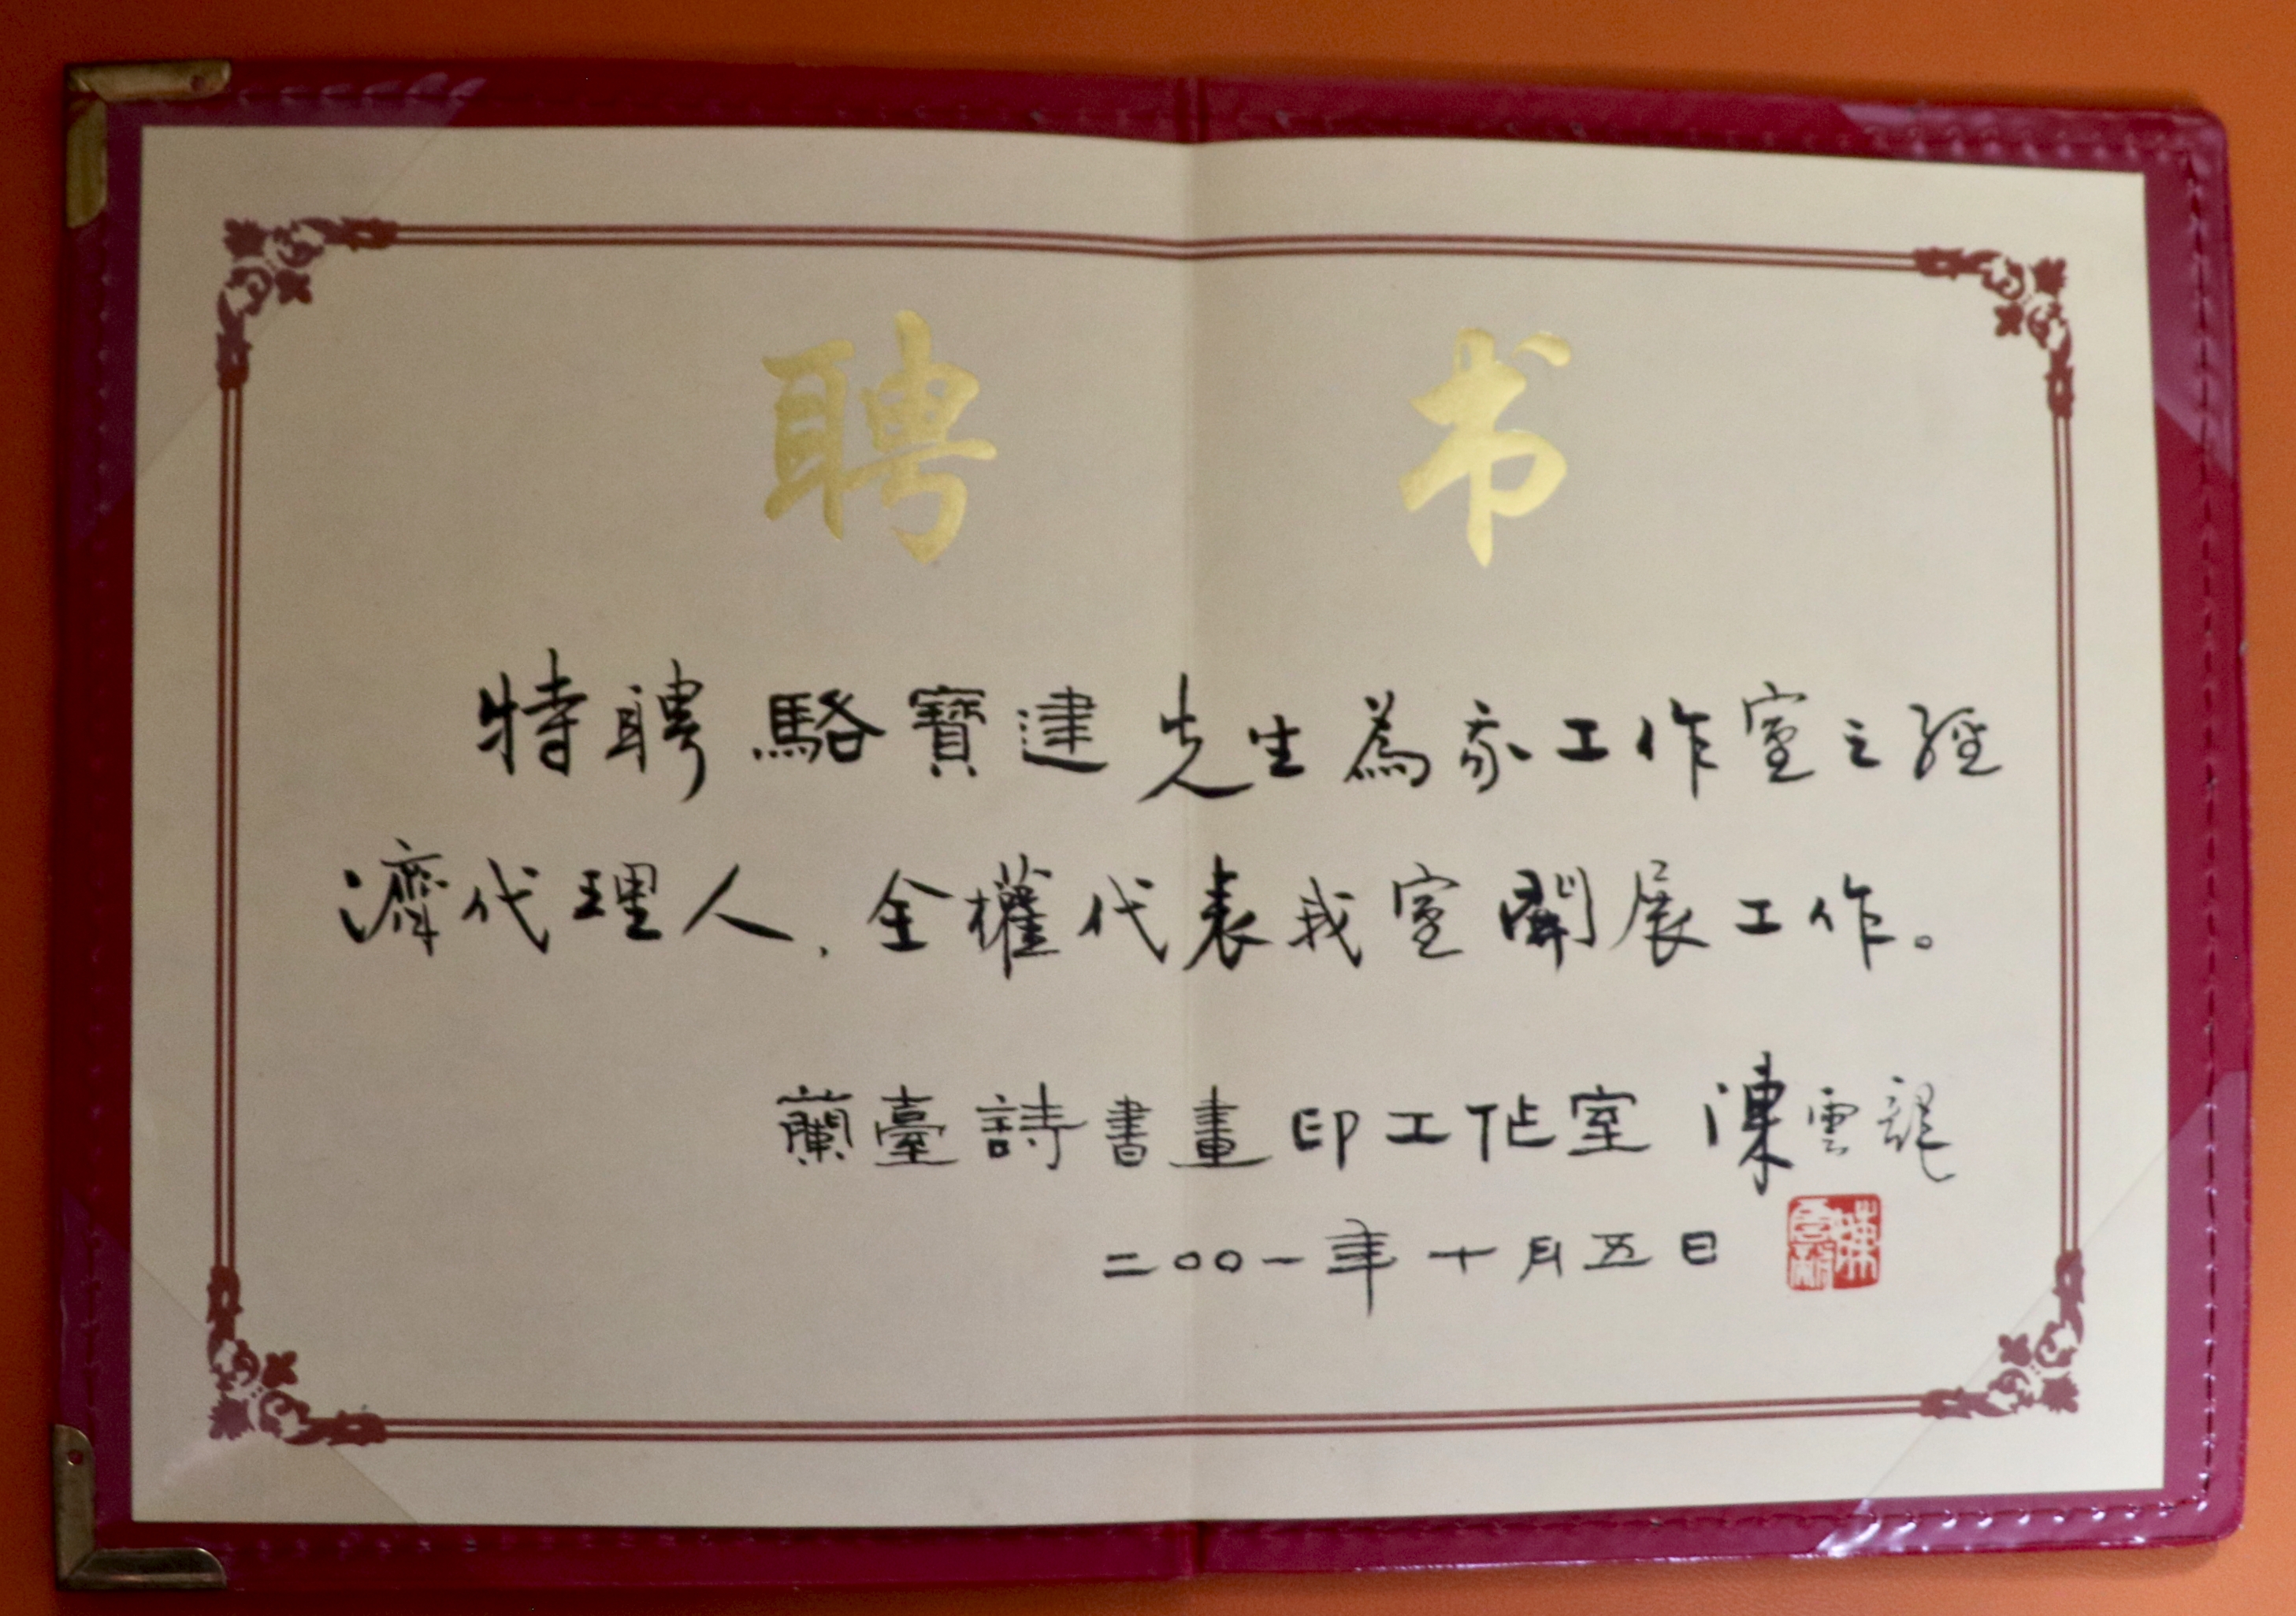 聘书
特聘駱寶建先生為我工作室之經
濟代理人，全權代表我室開展工作。
蘭臺詩書畫印工作室 陳雲龍
二〇〇一年十月五日